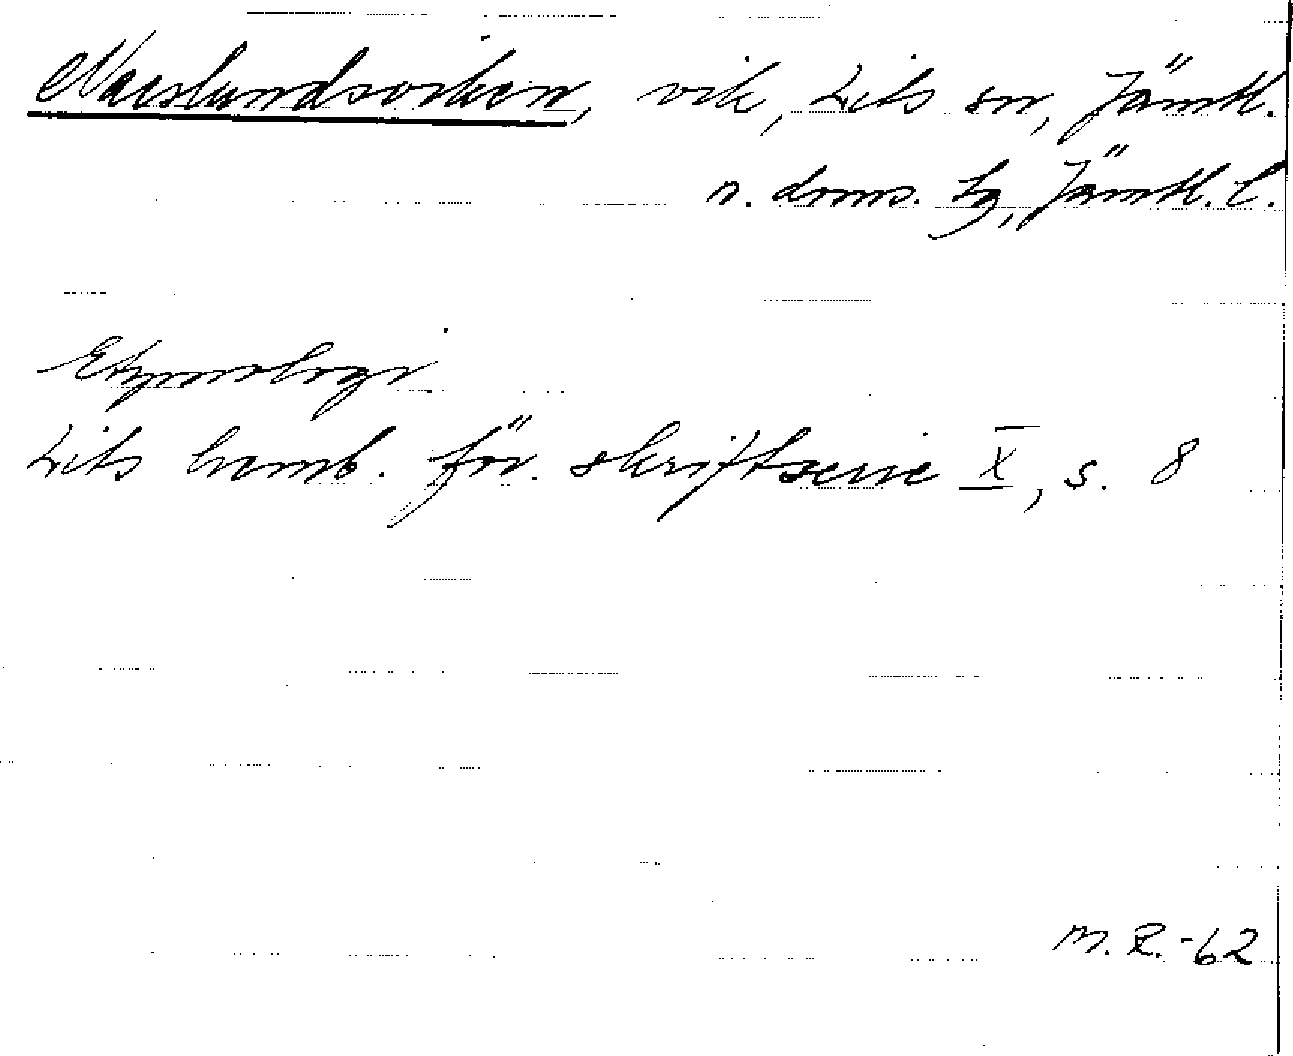 Naeslundsviken, vik, Lits sn, Jämtl.
n. doms. tg, Jämtl. l.
Etymologi
Lits hemb. för. skriftserie X, s. 8
M. R. -62